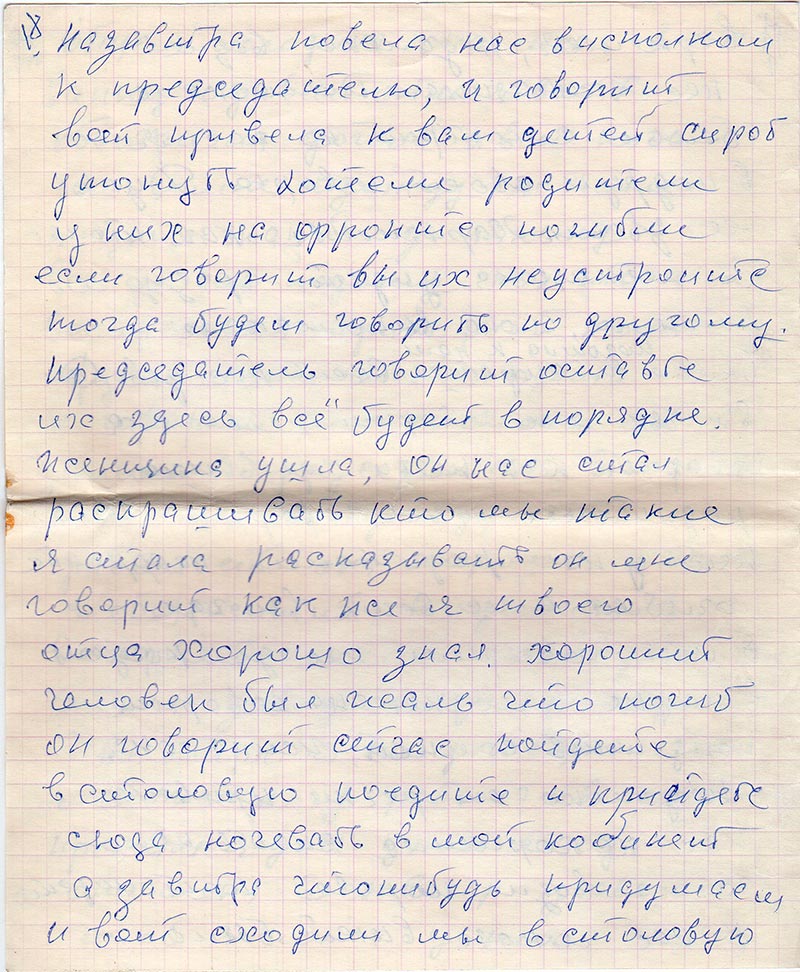 18. Назавтра повела нас в исполком
к председателю, и говорит
вот привела к вам детей сироб
утонуть хотели родители
у них на фронте погибли
если говорит вы их неустроите
тогда будем говорить по другому.
председатель говорит оставте
их здесь всё будет в порядке.
Женщина ушла, он нас стал
распрашивать кто мы такие
я стала расказывать он мне
говорит как же я твоего
отца хорошо знал. хороший
человек был жаль что погиб
он говорит сейчас пойдете
в столовую поедите и прийдете
сюда ночевать в мой кабинет
а завтра чтонибудь придумаем
и вот сходили мы в столовую